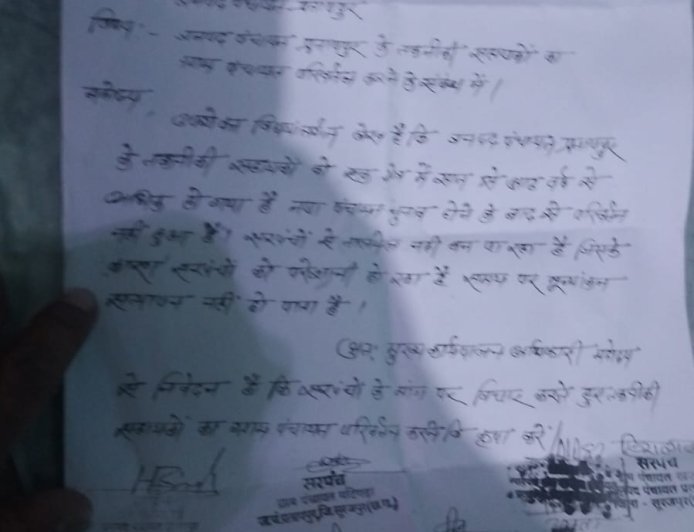 जनपद पंचायत प्रतापपुर
विषय:- जनपद पंचायत प्रतापपुर के तकनीकी सहायकों का
ग्राम पंचायत परिवर्तन करने के संबंध में।
महोदय,
उपरोक्त विषयांतर्गत लेख है कि जनपद पंचायत प्रतापपुर
के तकनीकी सहायकों को एक क्षेत्र में सात से आठ वर्ष से
अधिक हो गया है नया पंचायत चुनाव होने के बाद से परिवर्तन
नहीं हुआ है। सरपंचों से तालमेल नहीं बन पा रहा है जिसके
कारण सरपंचों को परेशानी हो रहा है समय पर मूल्यांकन
सत्यापन नहीं हो पाता है।
अतः मुख्य कार्यपालन अधिकारी महोदय
से निवेदन है कि सरपंचों के मांग पर विचार करते हुए तकनीकी
सहायकों का ग्राम पंचायत परिवर्तन करने कि कृपा करें
सरपंच
ग्राम पंचायत
सरपंच
ग्राम पंचायत
जनपद पंचायत